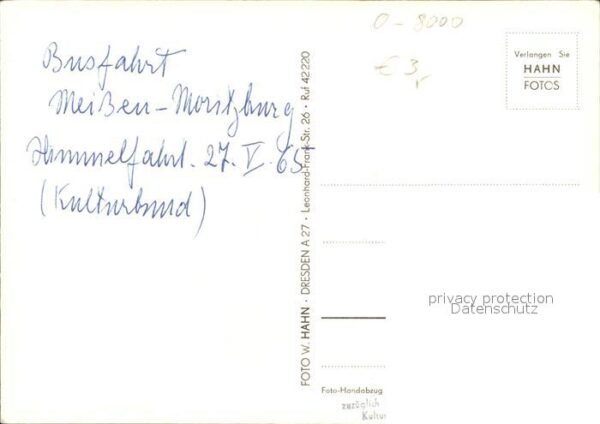 Busfahrt
Meißen-Moritzburg
Himmelfahrt. 27. V. 65
(Kulturbund)
FOTO W. HAHN · DRESDEN A 27 · Leonhard-Frank-Str. 26 · Ruf 42 220
0-8000
€ 3,-
Verlangen Sie
HAHN
FOTOS
privacy protection
Datenschutz
Foto-Handabzug
zuzüglich
Kultur